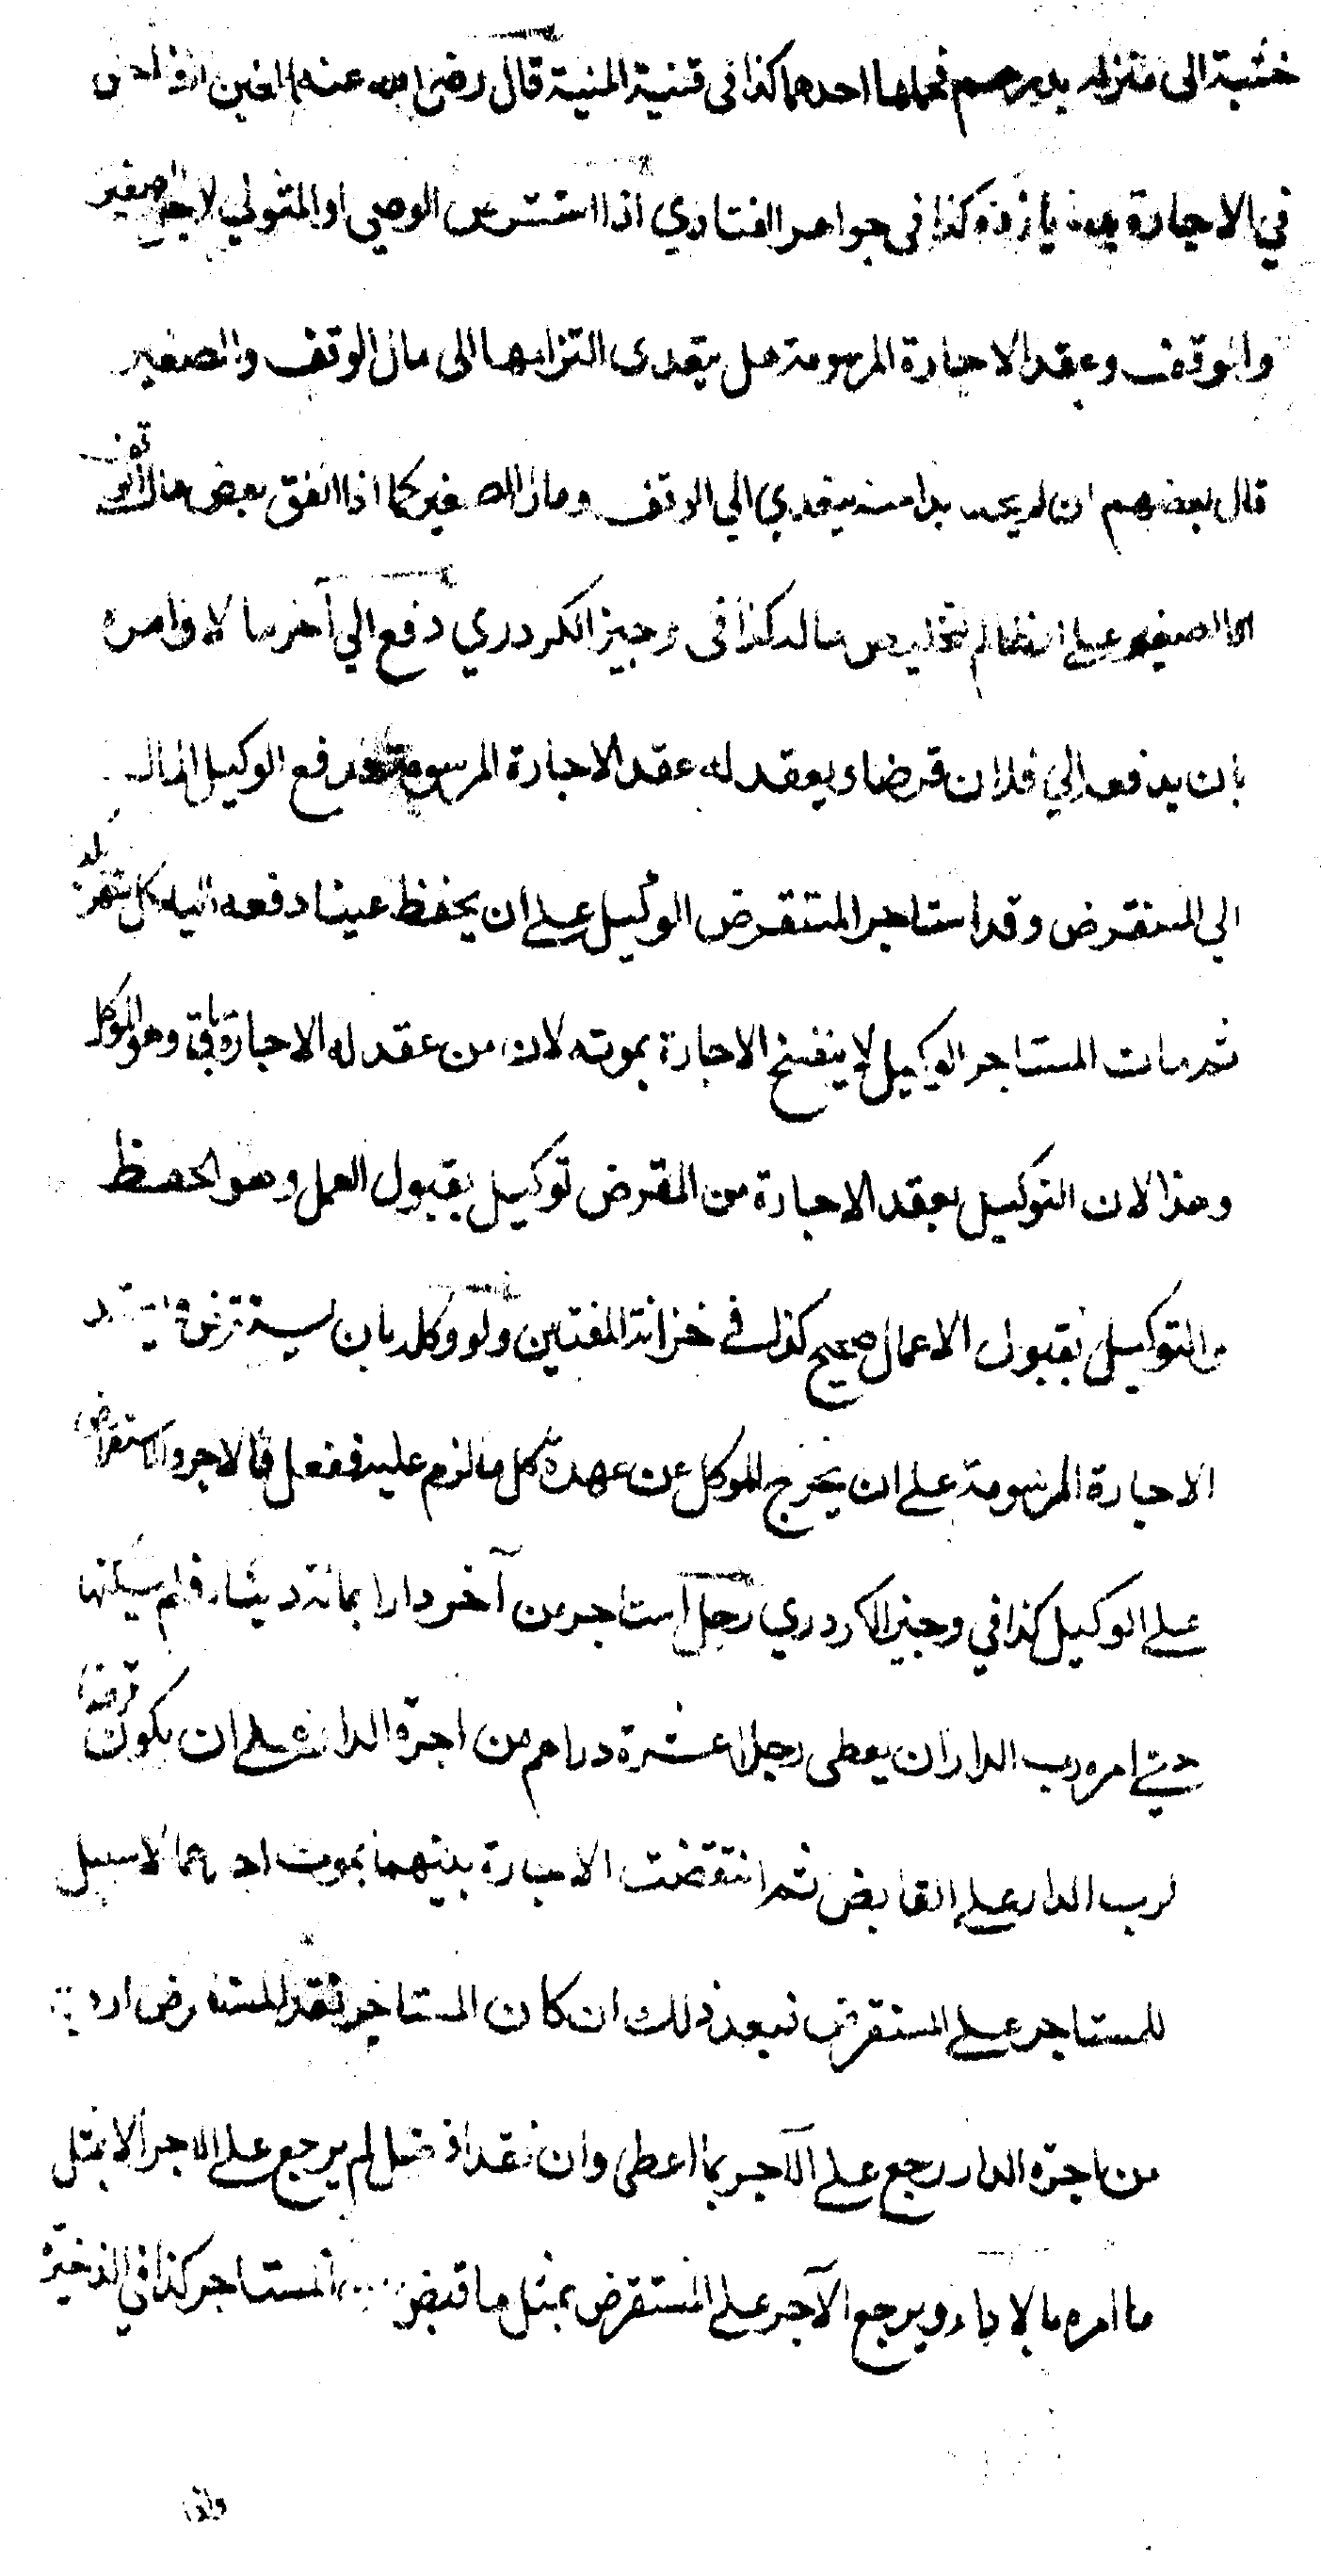 خشبة الى منزله بدرهم فحملها احدهما كذا فى قنية المنية قال رضى الله عنه الغبن الفاحش
في الاجارة بده يازده كذا فى جواهر الفتاوي اذا استقرض الوصي او المتولي لاجل الصغير
والوقف وعقد الاجارة المرسومة هل يتعدى التزامها الى مال الوقف والصغير
قال بعضهم ان لم يجد بدا منه يتعدي الي الوقف ومال الصغير كما اذا انفق بعض مال الوقف
او الصغير على الظالم لتخليص ماله كذا فى وجيز الكردري دفع الي آخر مالا وامره
بان يدفعه الي فلان قرضا ويعقد له عقد الاجارة المرسومة فدفع الوكيل المال
الي المستقرض وقد استاجر المستقرض الوكيل على ان يحفظ عينا دفعه اليه كل شهر بكذا
ثم مات المستاجر الوكيل لا ينفسخ الاجارة بموته لان من عقد له الاجارة باق وهو الموكل
وهذا لان التوكيل بعقد الاجارة من المقرض توكيل بقبول العمل وهو الحفظ
والتوكيل بقبول الاعمال صحيح كذا فے خزانة المفتين ولو وكله بان يستقرض ويعقد
الاجارة المرسومة على ان يخرج الموكل عن عهدة كل ما لزم عليه ففعل فالاجر والاستقراض
على الوكيل كذا في وجيز الكردري رجل استاجر من آخر دارا بمائة دينار فلم يسكنها
حتى امره رب الدار ان يعطى رجلا عشرة دراهم من اجرة الدار على ان يكون قرضا
لرب الدار على القابض ثم انتقضت الاجارة بينهما بموت احدهما لا سبيل
للمستاجر على المستقرض فبعد ذلك ان كان المستاجر نقد المستقرض اردى
من اجرة الدار رجع على الآجر بما اعطى وان نقد افضل لم يرجع على الاجر الا بمثل
ما امره بالاداء ويرجع الآجر على المستقرض بمثل ما قبض من المستاجر كذا في الذخيرة
ولو